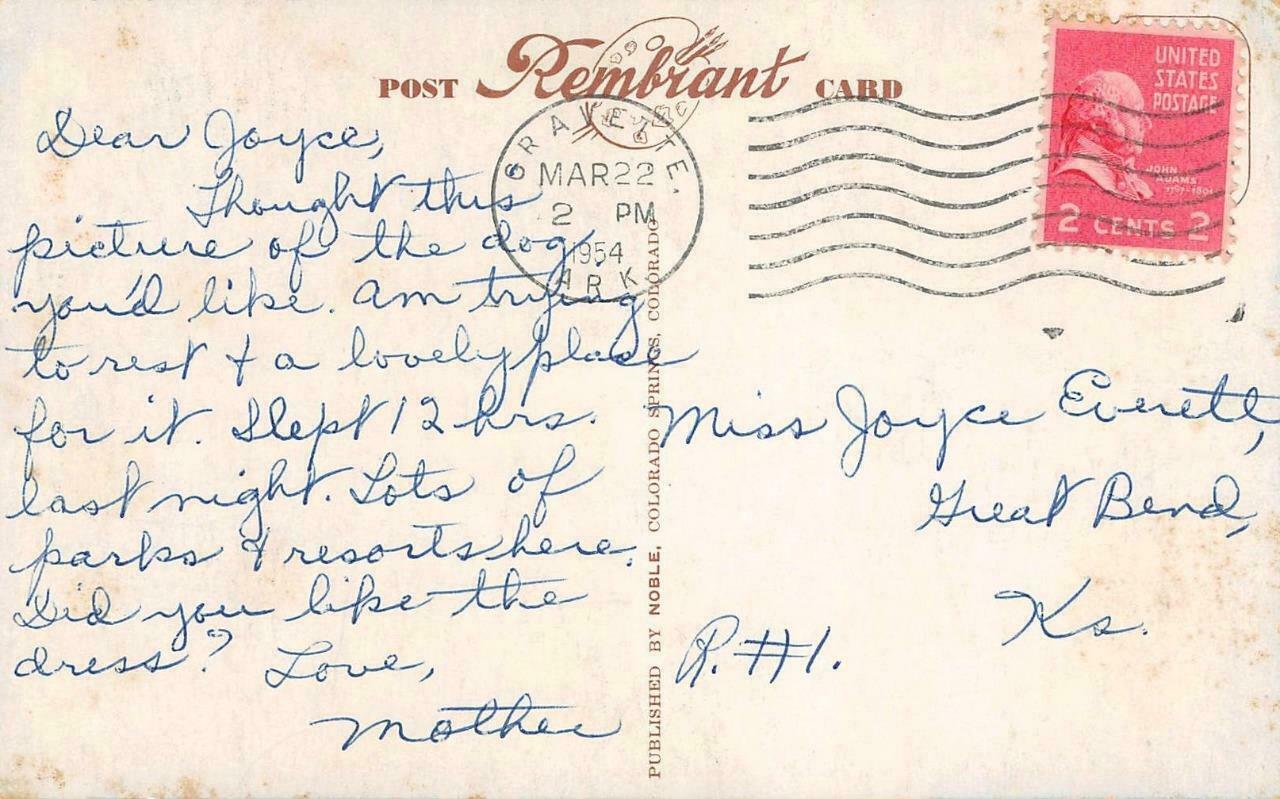 POST Rembrant CARD
GRAVETTE,
MAR 22
2 PM
1954
ARK
UNITED
STATES
POSTAGE
JOHN
ADAMS
1797-1801
2 CENTS 2
Dear Joyce,
Thought this
picture of the dog
you'd like. Am trying
to rest & a lovely place
for it. Slept 12 hrs.
last night. Lots of
parks & resorts here.
Did you like the
dress? Love,
Mother
PUBLISHED BY NOBLE, COLORADO SPRINGS, COLORADO
Miss Joyce Everett,
Great Bend,
Ks.
R.#1.